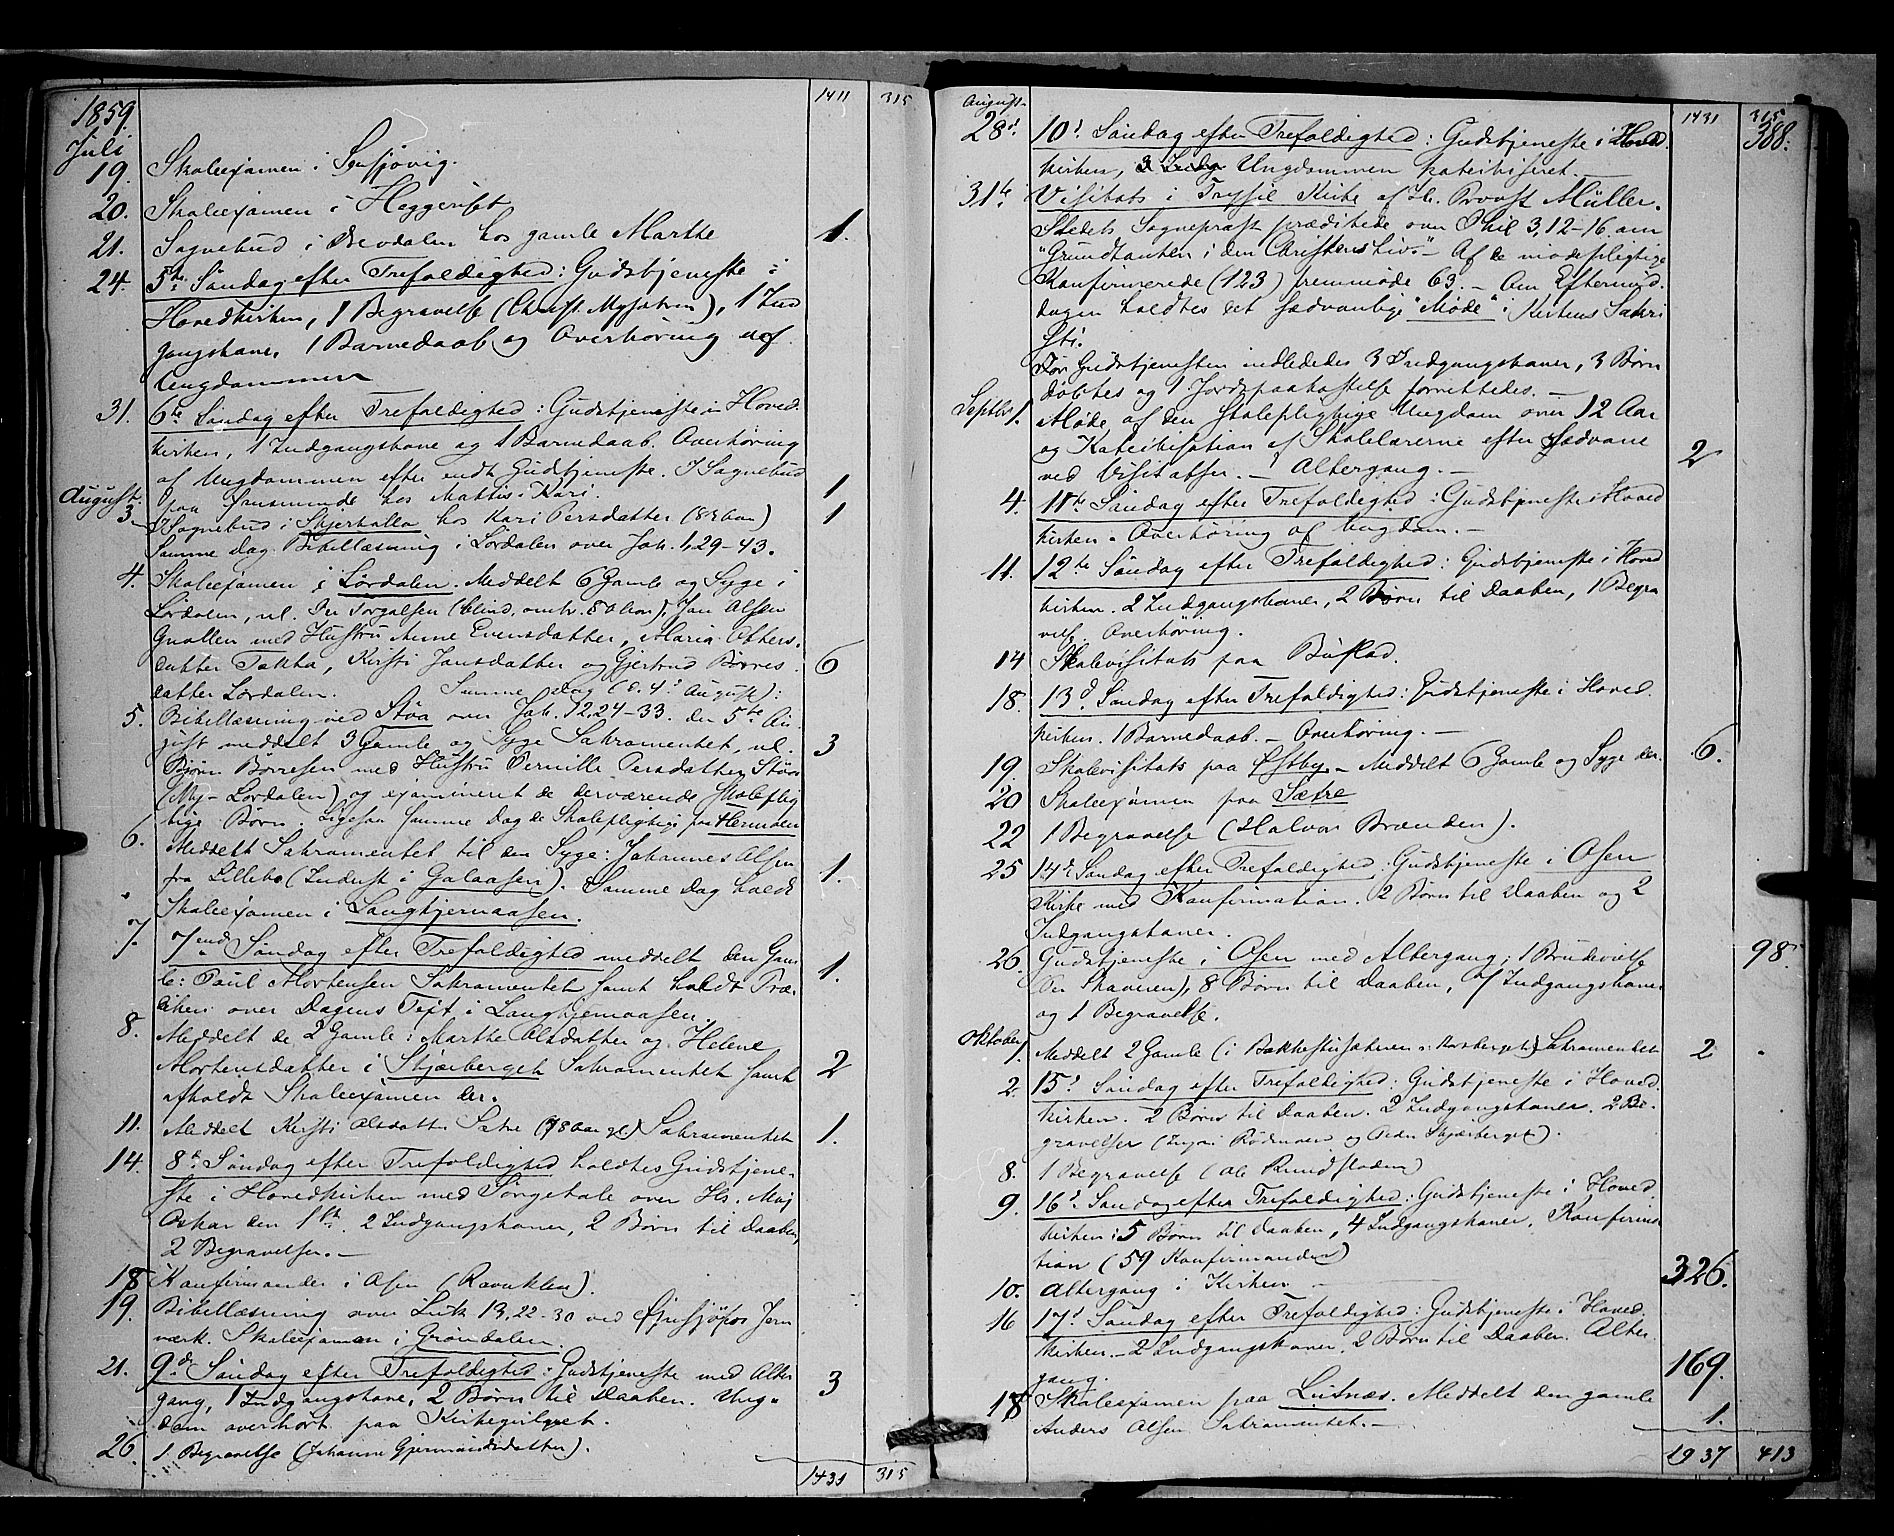 1859. 1411 315
Juli
19. Skoleexamen i Sensjøvig.
20. Skoleexamen i Heggeriset
21. Sognebud i Drevdalen hos gamle Marthe 1.
24. 5te Søndag efter Trefoldighed: Gudstjeneste i
Hovedkirken, 1 Begravelse (Christ. Mysætren), 1 Ind
gangskone, 1 Barnedaab og Overhøring af
Ungdommen
31. 6te Søndag efter Trefoldighed: Gudstjeneste i Hoved
kirken, 1 Indgangskone og 1 Barnedaab. Overhøring
af Ungdommen efter endt Gudstjeneste. I Sognebud
August paa hos Mattis i Kari. 1
3. I Sognebud i Skjærhalla hos Kari Persdatter (83 Aar) 1
Samme Dag Bibellæsning i Lørdalen over Joh. 1,29-43.
4. Skoleexamen i Lørdalen. Meddelt 6 Gamle og Syge i
Lørdalen, nl. Per Torgalsen (blind, omtr. 50 Aar), Jon Olsen
Gnollen med Hustru Anne Evensdatter, Maria Otters
datter Takka, Kirsti Jonsdatter og Gjertrud Børres 6
datter Lørdalen. Samme Dag (d. 4d August):
5. Bibellæsning ved Støa over Joh. 12,24-33. den 5te Au
gust meddelt 3 Gamle og Syge Sakramentet, nl. 3
Bjørn Børresen med Hustru Pernille Persdatter, Støa
(My-Lørdalen) og examineret de derværende Skoleplig
tige Børn. Ligesaa samme Dag de Skolepligtige fra
6. Meddelt Sakramentet til den Syge: Johannes Olsen
fra Lillebo (Inderst i Galaasen). Samme Dag holdt 1.
Skoleexamen i Langtjernaasen.
7. 7ende Søndag efter Trefoldighed meddelt den Gam
le: Paul Mortensen Sakramentet samt holdt Præ 1.
diken over Dagens Text i Langtjernaasen.
8. Meddelt de 2 Gamle: Marthe Olsdatter og Helene
Mortensdatter i Skjærberget Sakramentet samt 2
afholdt Skoleexamen der.
11. Meddelt Kirsti Olsdatter Sætre (78 Aar gl.) Sakramentet 1.
14. 8de Søndag efter Trefoldighed holdtes Gudstjene-
ste i Hovedkirken med Sørgetale over Hs. Maj
Oskar den 1ste. 2 Indgangskoner, 2 Børn til Daaben,
2 Begravelser.
18 Konfirmander i Osen (Ravnklev).
19. Bibellæsning over Luk 13,22-30 ved Jern
værk. Skoleexamen i Grøndalen.
21. 9de Søndag efter Trefoldighed: Gudstjeneste med Alter
gang, 1 Indgangskone, 2 Børn til Daaben. Ung- 3
dom overhørt paa Kirkegulvet.
26. 1 Begravelse (Johanne Gjermundsdatter).
1431 315
August 1431 315
28d. 10d Søndag efter Trefoldighed: Gudstjeneste i Hoved 388.
kirken, Ungdommen katechiseret.
31te Visitats i Trysil Kirke af Hr. Provst Müller.
Stedets Sognepræst prædikede over Phil 3,12-16 om
"Grundtanken i den Christens Liv." - Af de mødepligtige
Konfirmerede (123) fremmøde 63. - Om Eftermid
dagen holdtes det sædvanlige "Møde" i Kirkens Sakri
sti.
Før Gudstjenesten indlededes 3 Indgangskoner, 3 Børn
døbtes og 1 Jordspaakastelse forrettedes.
Septbr 1. Møde af den skolepligtige Ungdom over 12 Aar
og Katechisation af Skolelærerne efter Sædvane
ved Visitatser. - Altergang. 2
4. 11te Søndag efter Trefoldighed: Gudstjeneste i Hoved
kirken. Overhøring af Ungdom.
11. 12te Søndag efter Trefoldighed: Gudstjeneste i Hoved
kirken. 2 Indgangskoner, 2 Børn til Daaben, 1 Begra
velse. Overhøring.
14 Skolevisitats paa Buflod.
18. 13d Søndag efter Trefoldighed: Gudstjeneste i Hoved
kirken. 1 Barnedaab. - Overhøring.
19. Skolevisitats paa Østby - Meddelt 6 Gamle og Syge der. 6.
20 Skoleexamen paa Sætre
22 1 Begravelse (Halvor Brænden).
25 14de Søndag efter Trefoldighed. Gudstjeneste i Osen
Kirke med Konfirmation. 2 Børn til Daaben og 2
Indgangskoner.
26. Gudstjeneste i Osen med Altergang; 1 Brudevielse 98.
(Per Skaveren), 8 Børn til Daaben, 7 Indgangskoner
og 1 Begravelse.
Oktober 1. Meddelt 2 Gamle (i Sakramentet 2
2. 15d Søndag efter Trefoldighed: Gudstjeneste i Hoved
kirken. 2 Børn til Daaben. 2 Indgangskoner. 2 Be-
gravelser (Rødmoen og Peder Skjærberget).
8. 1 Begravelse (Ole Rundfloden)
9. 16d Søndag efter Trefoldighed: Gudstjeneste i Hoved
kirken: 5 Børn til Daaben, 4 Indgangskoner. Konfirma
tion (59 Konfirmander)
10. Altergang i Kirken 326.
16 17d Søndag efter Trefoldighed: Gudstjeneste i Hoved
kirken. - 2 Indgangskoner, 2 Børn til Daaben. Alter
gang. 169.
18 Skoleexamen paa Lutnæs. Meddelt den gamle
Anders Olsen Sakramentet. 1.
1937 413